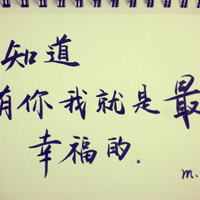 知道
有你我就是最
幸福的.
m.